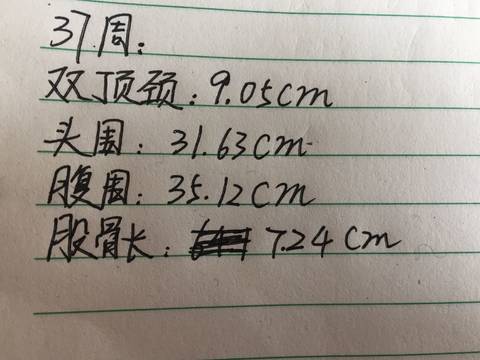 37周:
双顶颈:9.05cm
头围:31.63cm
腹围:35.12cm
股骨长:7.24cm